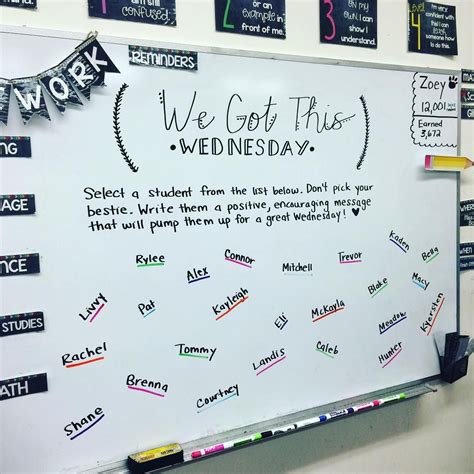 I'm still
confused.
2
or an
example in
front of me.
3
on my
own. I can
show my
understanding.
4
I am very
confident with
this! I could
explain how
to do it.
WORK
REMINDERS
We Got This
• WEDNESDAY •
Zoey
12,001
Earned
3,672
Select a student from the list below. Don't pick your
bestie. Write them a positive, encouraging message
that will pump them up for a great Wednesday!
Rylee
Alex
Connor
Mitchell
Trevor
Kaden
Bella
Livvy
Pat
Kayleigh
Eli
McKayla
Blake
Macy
Meadow
Kyersten
Rachel
Tommy
Landis
Caleb
Hunter
Brenna
Courtney
Shane
STUDIES
MATH